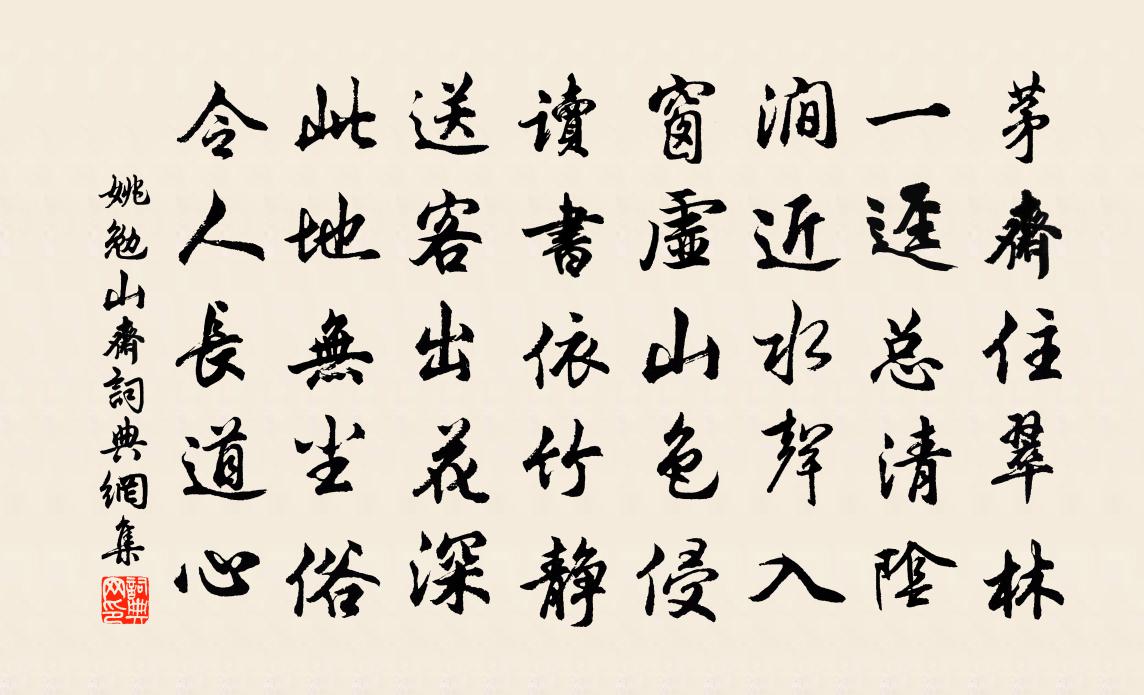 茅齋住翠林
一逕总清陰
澗近水聲入
窗虛山色侵
讀書依竹静
送客出花深
此地無尘俗
令人長道心
姚勉山齋詞典網集
詞典网印